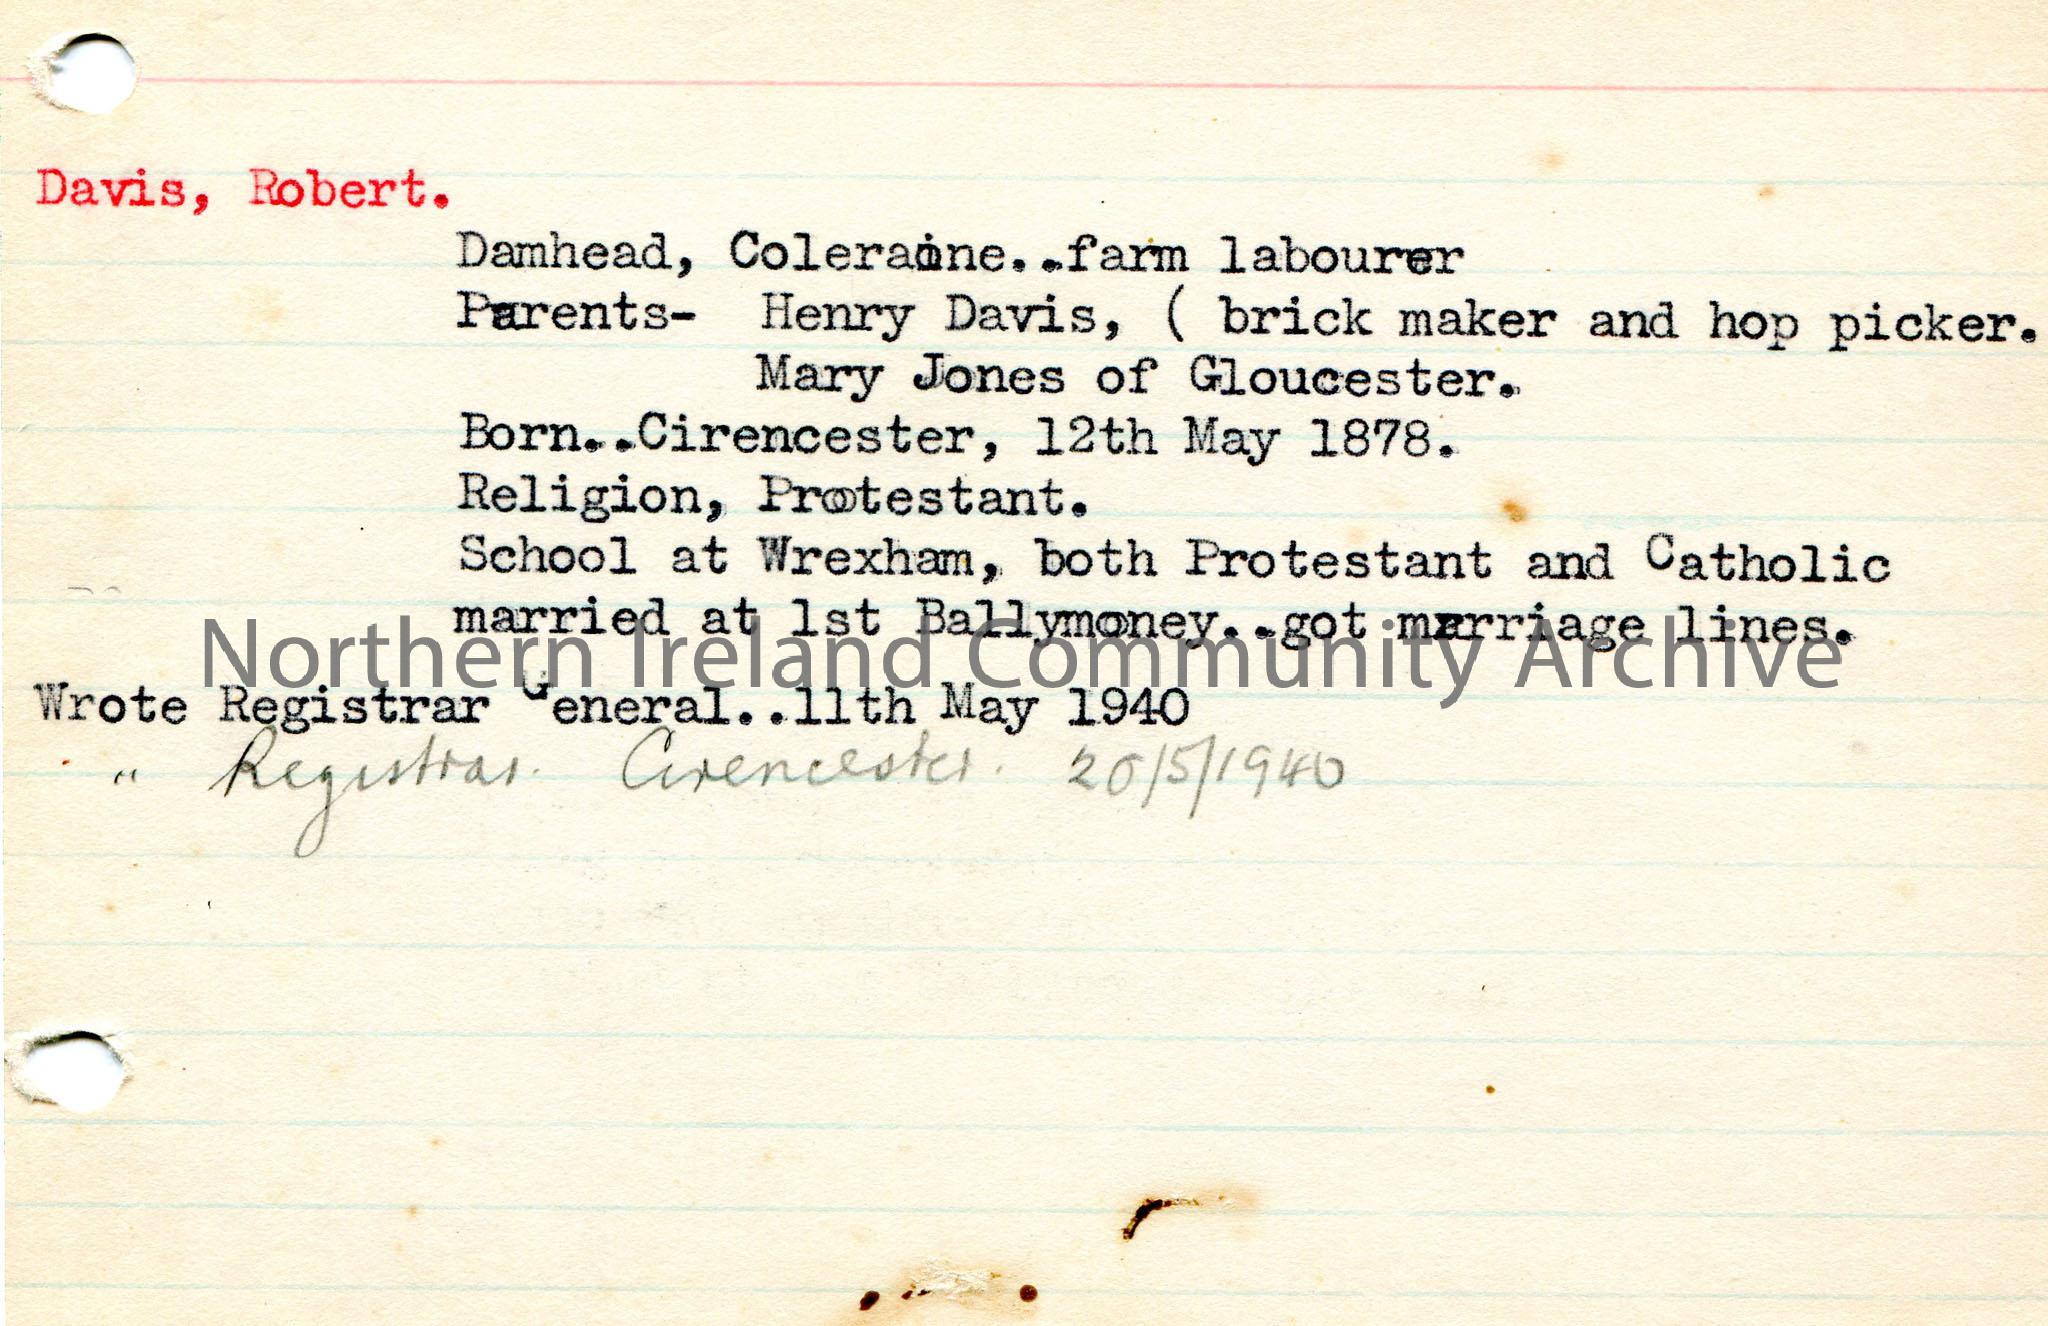 Davis, Robert.
Damhead, Coleraine..farm labourer
Parents- Henry Davis, ( brick maker and hop picker.
Mary Jones of Gloucester.
Born..Cirencester, 12th May 1878.
Religion, Protestant.
School at Wrexham, both Protestant and Catholic
married at 1st Ballymoney..got marriage lines.
Northern Ireland Community Archive
Wrote Registrar General..11th May 1940
" Registrar. Cirencester. 20/5/1940